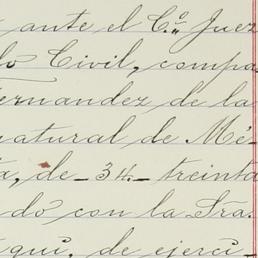 ante el C.º Juez
Civil, compa
ernandez de la
natural de Mé-
a, de - 34 - treinta
dó con la Sra.
qui, de ejerci-